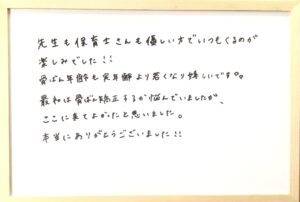 先生も保育士さんも優しい方でいつもくるのが
楽しみでした!!
骨ばん年齢も実年齢より若くなり嬉しいです。
最初は骨ばん矯正するか悩んでいましたが、
ここに来てよかったと思いました。
本当にありがとうございました!!